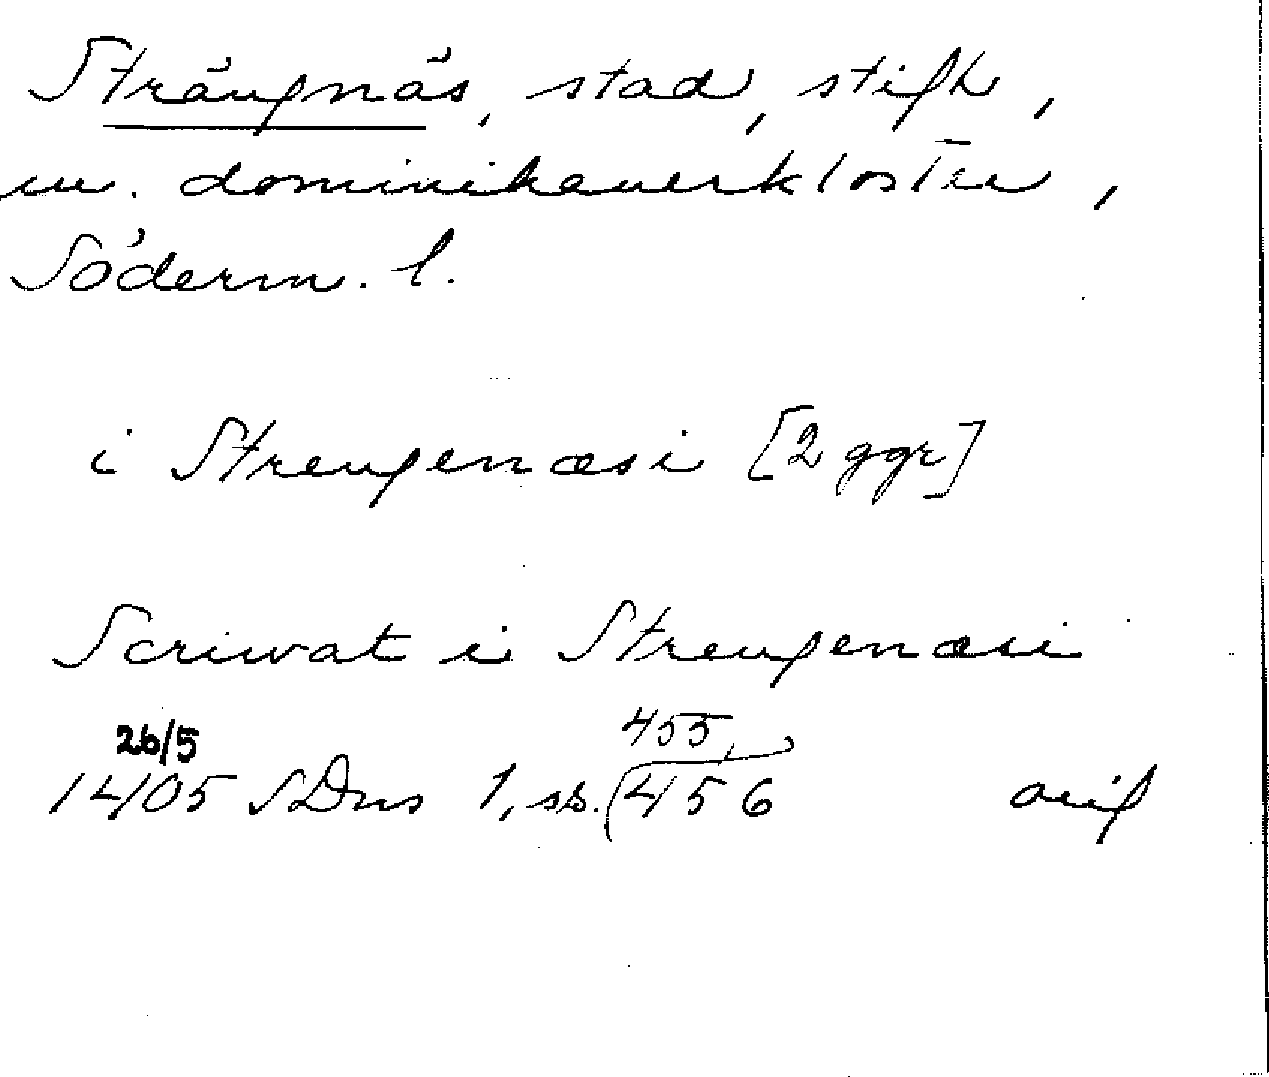 Strängnäs, stad, stift,
m. dominikanerkloster,
Söderm. l.
i Strengenæsi [2 ggr]
Scriwat i Strengenæsi
26/5 455,
1405 SDns 1, ss. 456 orig